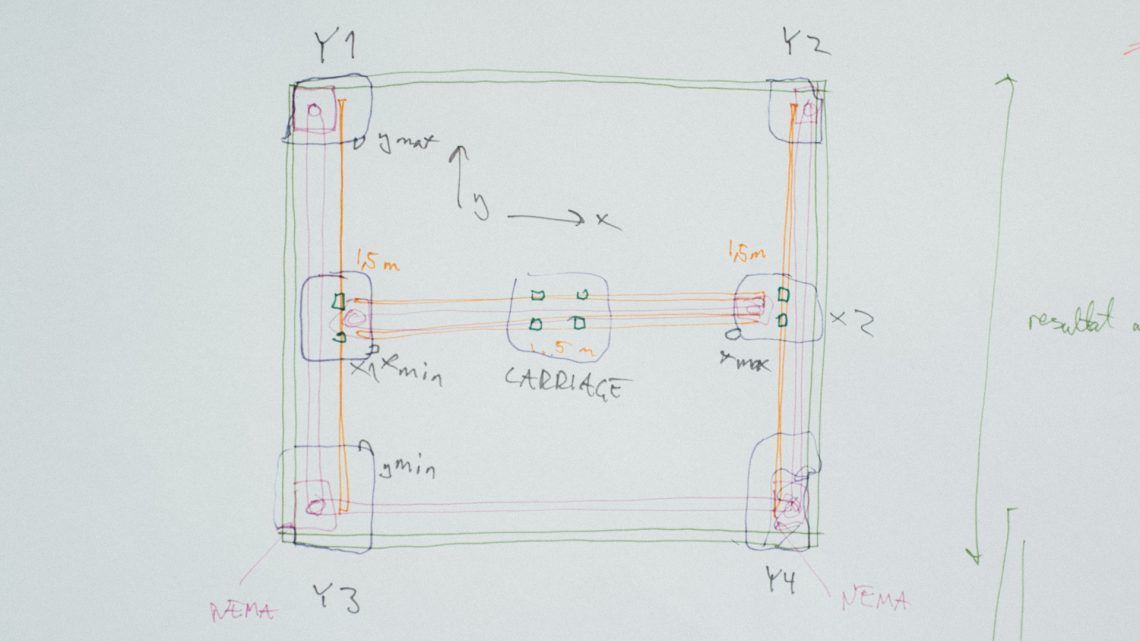 Y1
Y2
ymax
y
x
1,5 m
1,5 m
x2
x1 xmin
1,5 m
xmax
CARRIAGE
resultat
ymin
Y3
Y4
NEMA
NEMA